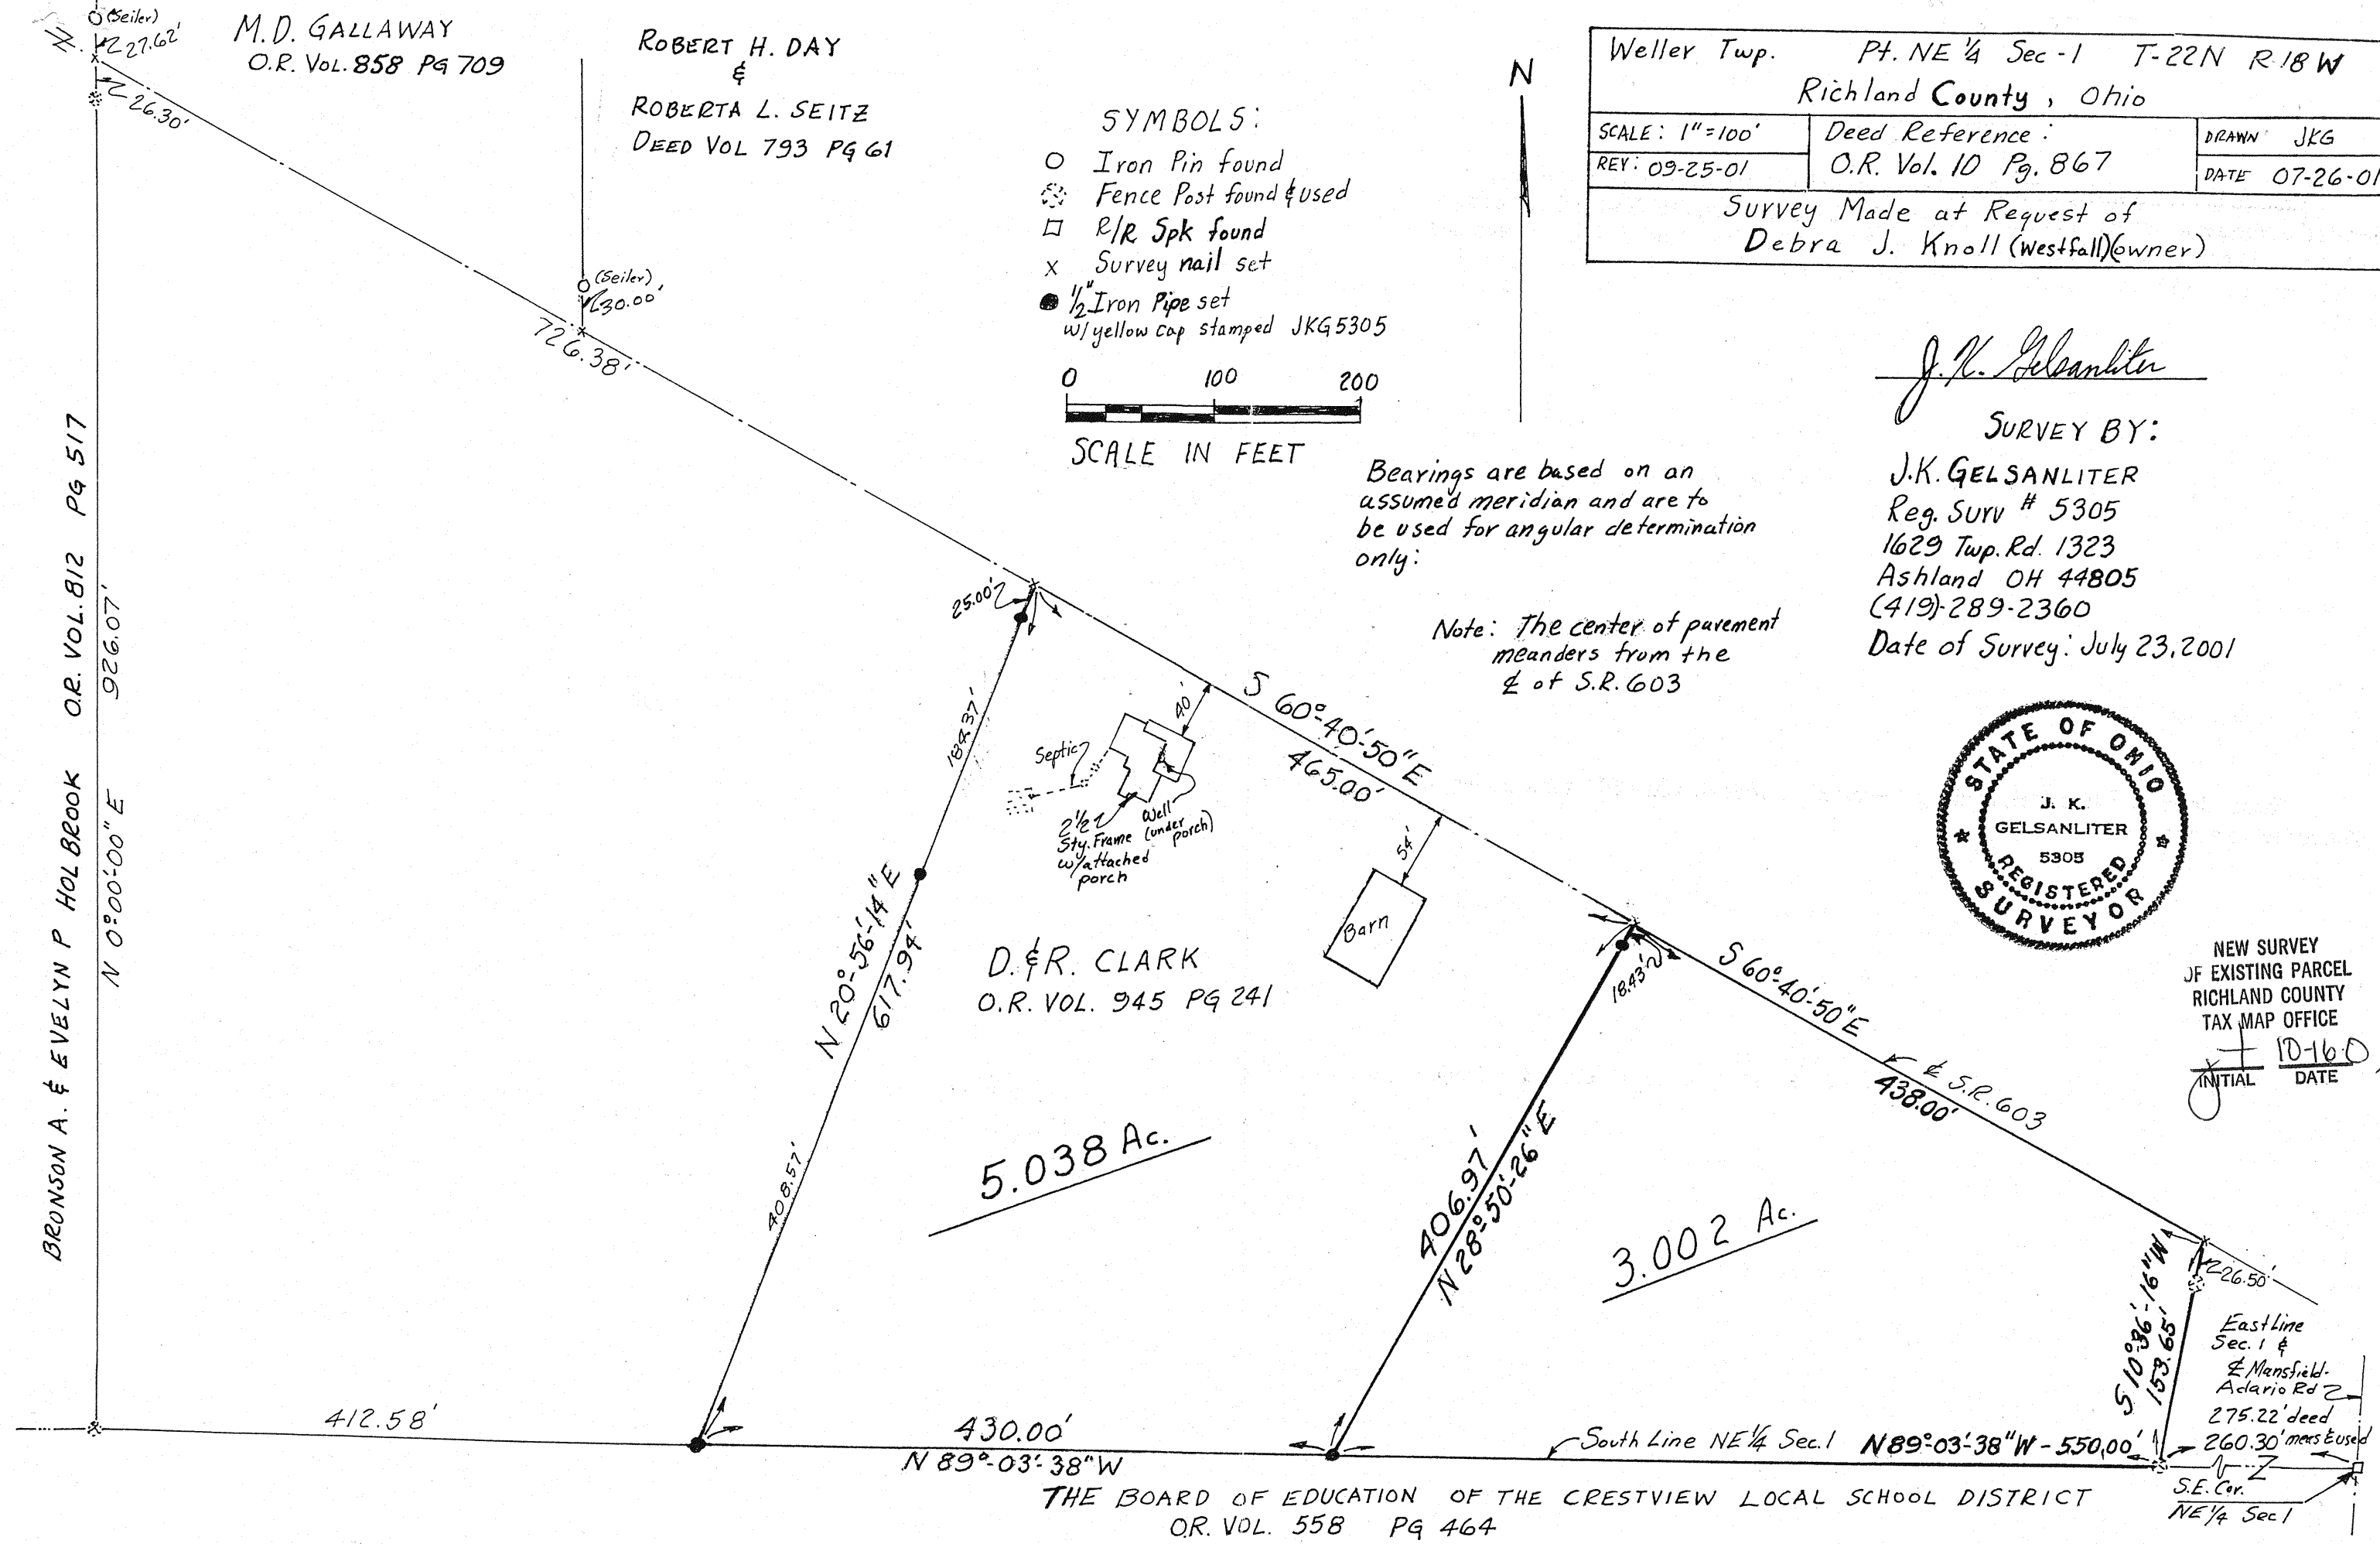 (Seiler)
27.62'
26.30'
M.D. GALLAWAY
O.R. VOL. 858 PG 709
ROBERT H. DAY
&
ROBERTA L. SEITZ
DEED VOL 793 PG 61
(Seiler)
30.00'
726.38'
SYMBOLS:
Iron Pin found
Fence Post found & used
R/R Spk found
x Survey nail set
1/2" Iron Pipe set
w/yellow cap stamped JKG5305
0 100 200
SCALE IN FEET
N
Weller Twp. Pt. NE 1/4 Sec-1 T-22N R-18W
Richland County, Ohio
SCALE: 1"=100'
REV: 09-25-01
Deed Reference:
O.R. Vol. 10 Pg. 867
DRAWN JKG
DATE 07-26-01
Survey Made at Request of
Debra J. Knoll (Westfall)(owner)
J.K. Gelsanliter
SURVEY BY:
J.K. GELSANLITER
Reg. Surv # 5305
1629 Twp. Rd. 1323
Ashland OH 44805
(419)-289-2360
Date of Survey: July 23, 2001
Bearings are based on an
assumed meridian and are to
be used for angular determination
only:
Note: The center of pavement
meanders from the
℄ of S.R. 603
STATE OF OHIO
J. K.
GELSANLITER
5305
REGISTERED
SURVEYOR
NEW SURVEY
OF EXISTING PARCEL
RICHLAND COUNTY
TAX MAP OFFICE
10-16-0
INITIAL DATE
BRONSON A. & EVELYN P HOLBROOK O.R. VOL. 812 PG 517
N 0°-00'-00" E 926.07'
25.00'
184.37'
N 20°-56'-14" E
617.94'
408.57'
Septic
40'
2 1/2
Sty. Frame
w/attached
porch
Well
(under
porch)
S 60°-40'-50" E
465.00'
54'
Barn
D. & R. CLARK
O.R. VOL. 945 PG 241
5.038 Ac.
18.43'
S 60°-40'-50" E
℄ S.R. 603
438.00'
406.97'
N 28°-50'-26" E
3.002 Ac.
S 10°-36'-16" W
153.65'
26.50'
East Line
Sec. 1 &
℄ Mansfield-
Adario Rd
275.22' deed
260.30' meas & used
S.E. Cor.
NE 1/4 Sec 1
412.58'
430.00'
N 89°-03'-38" W
South Line NE 1/4 Sec. 1 N 89°-03'-38" W - 550.00'
THE BOARD OF EDUCATION OF THE CRESTVIEW LOCAL SCHOOL DISTRICT
O.R. VOL. 558 PG 464